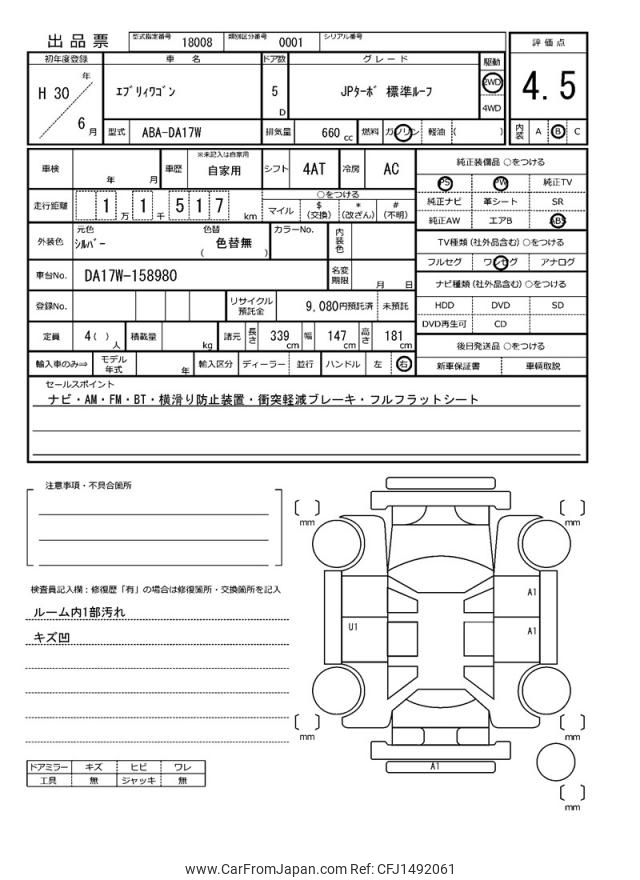 出品票 型式指定番号 18008 類別区分番号 0001 シリアル番号
評価点
4.5
内装 A B C
初年度登録 車名 ドア数 グレード 駆動
H 30 年 6 月 エブリィワゴン 5 D JPターボ 標準ルーフ 2WD 4WD
型式 ABA-DA17W 排気量 660 cc 燃料 ガソリン 軽油 ( )
車検 年 月 車歴 ※未記入は自家用 自家用 シフト 4AT 冷房 AC
走行距離 1 万 1 千 5 1 7 km ○をつける
マイル $ (交換) * (改ざん) # (不明)
外装色 元色 シルバー 色替 ( 色替無 ) カラーNo. 内装色
車台No. DA17W-158980 名変期限 月 日
登録No. リサイクル預託金 9,080円預託済 未預託
定員 4( ) 人 積載量 kg 諸元 長さ 339 cm 幅 147 cm 高さ 181 cm
輸入車のみ⇒ モデル年式 年 輸入区分 ディーラー 並行 ハンドル 左 右
純正装備品 ○をつける
PS PW 純正TV
純正ナビ 革シート SR
純正AW エアB ABS
TV種類 (社外品含む) ○をつける
フルセグ ワンセグ アナログ
ナビ種類 (社外品含む) ○をつける
HDD DVD SD
DVD再生可 CD
後日発送品 ○をつける
新車保証書 車輌取説
セールスポイント
ナビ・AM・FM・BT・横滑り防止装置・衝突軽減ブレーキ・フルフラットシート
注意事項・不具合箇所
検査員記入欄：修復歴「有」の場合は修復箇所・交換箇所を記入
ルーム内1部汚れ
キズ凹
ドアミラー キズ ヒビ ワレ
工具 無 ジャッキ 無
[ ] mm
[ ] mm
A1
U1
A1
[ ] mm
[ ] mm
A1
[ ] mm
www.CarFromJapan.com Ref: CFJ1492061